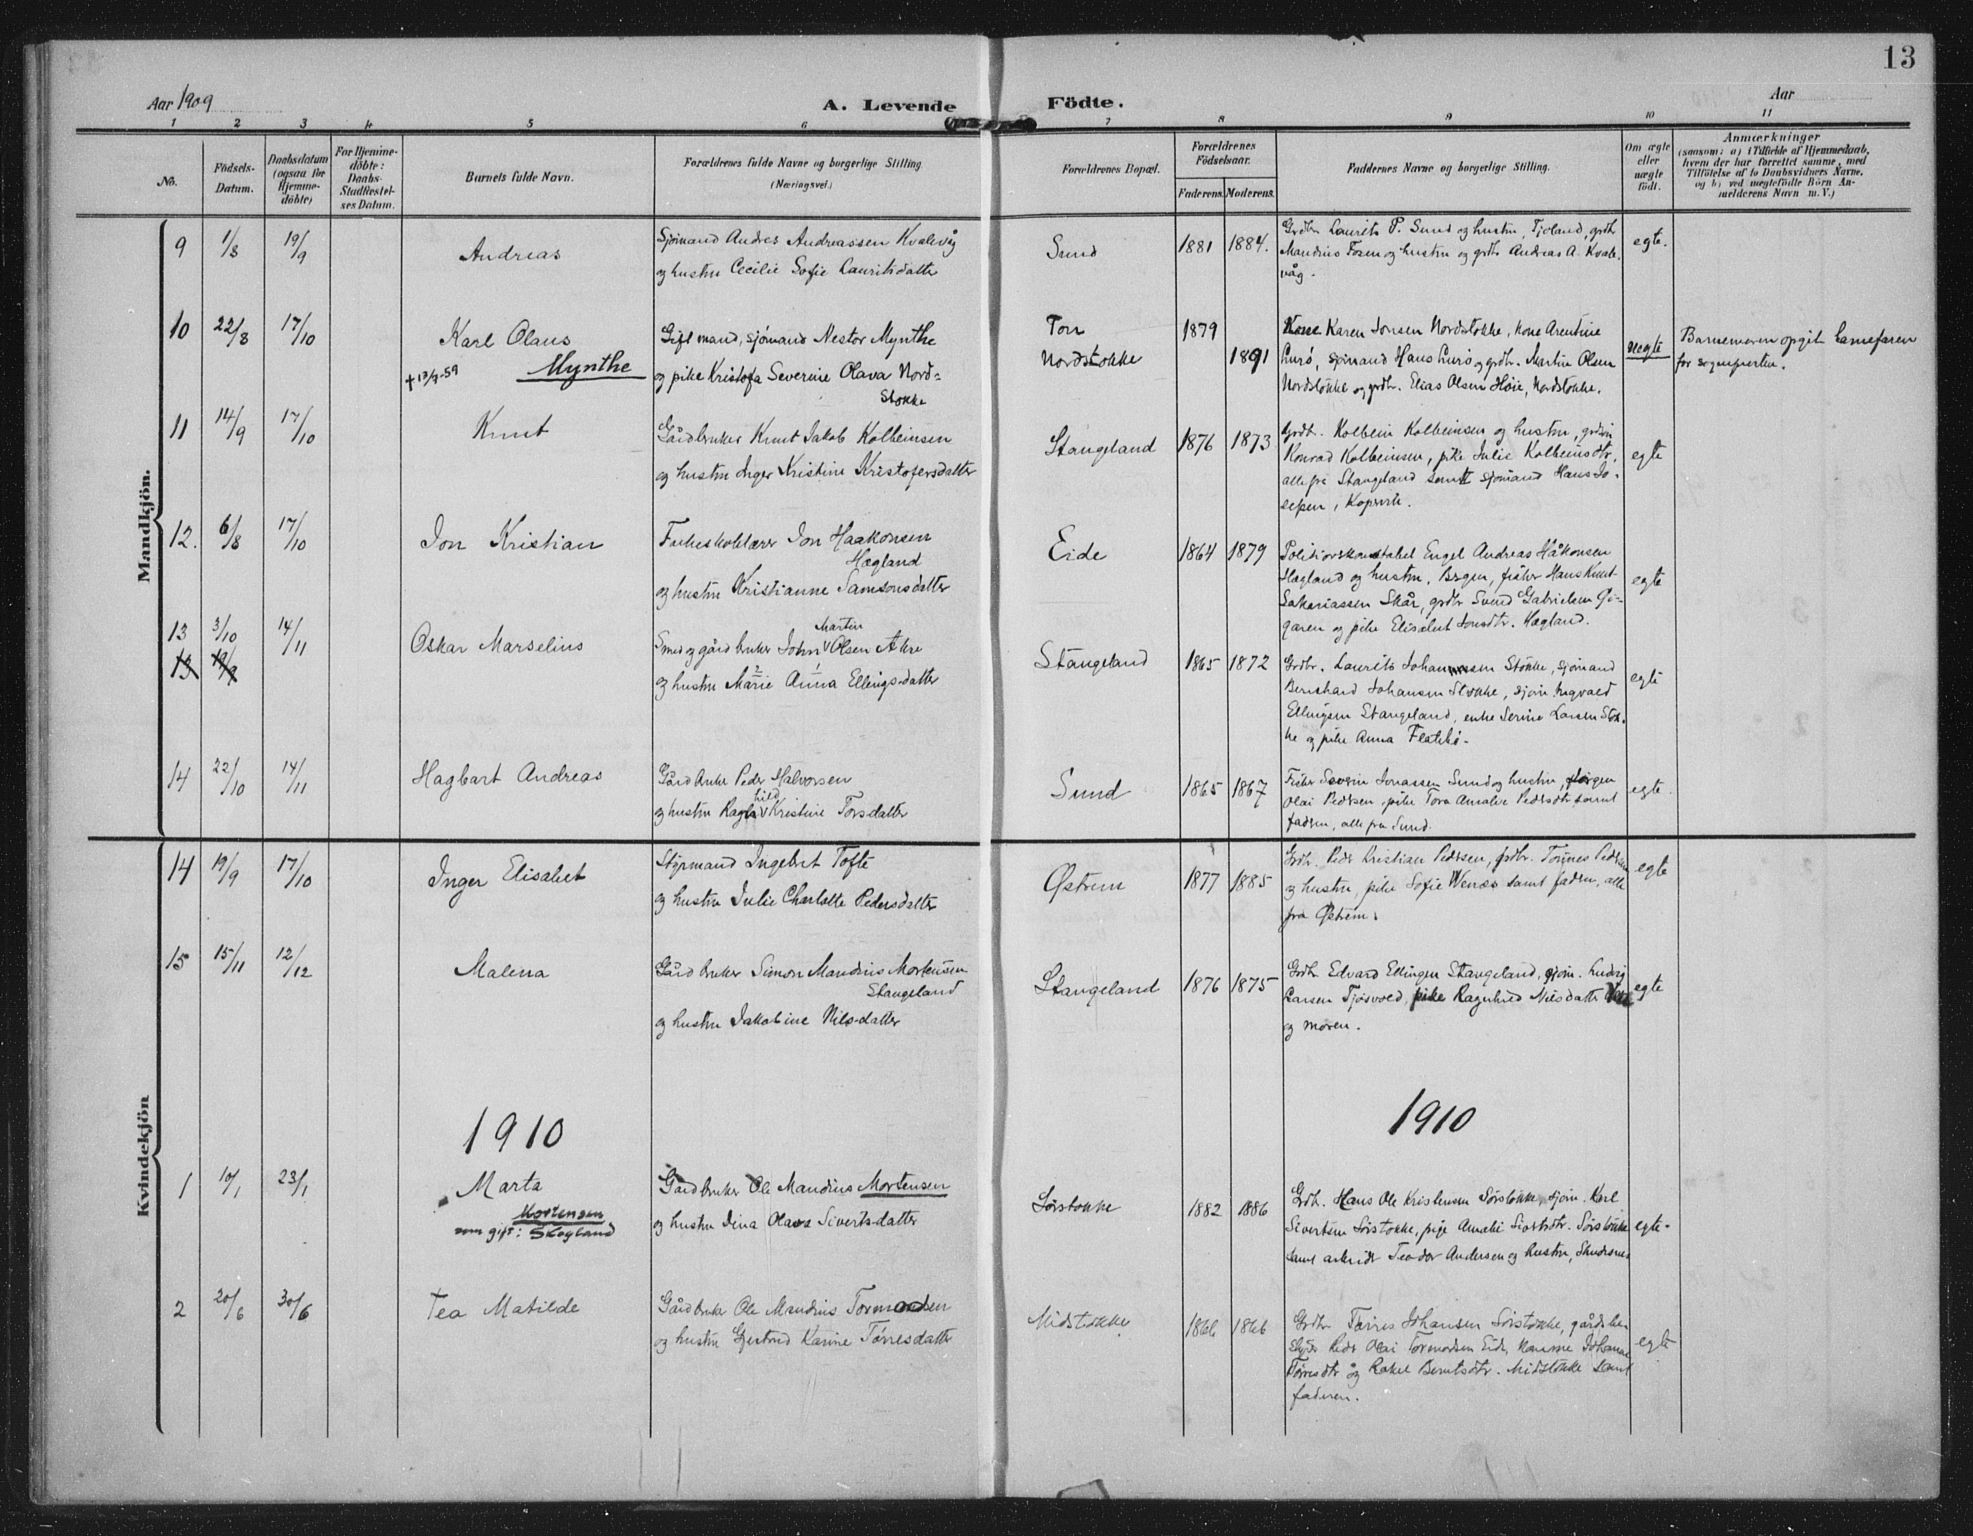 13
Aar 1909
A. Levende Födte.
Aar
1 2 3 4 5 6 7 8 9 10 11
No.
Födsels-
Datum.
Daabsdatum
(ogsaa for
Hjemme-
döbte)
For Hjemme-
döbte:
Daabs-
Stadfæstel-
ses Datum.
Barnets fulde Navn.
Forældrenes fulde Navne og borgerlige Stilling
(Næringsvei.)
Forældrenes Bopæl.
Forældrenes
Födselsaar.
Faderens. Moderens.
Faddernes Navne og borgerlige Stilling.
Om ægte
eller
uægte
födt.
Anmærkninger
(saasom: a) i Tilfælde af Hjemmedaab,
hvem der har forrettet samme, med
Tilföielse af to Daabsvidners Navne,
og b) ved uægtefödte Börn An-
melderens Navn m. V.)
Mandkjön.
9 1/8 19/9
Andreas
Sjömand Andres Andreassen Kvalevåg
og hustru Cecilie Sofie Lauritsdatter
Sund
1881 1884.
Grdbr. Laurits P. Sund og hustru, grdbr.
Mandius Fosen og hustru og grdbr Andreas A. Kvale-
våg.
egte.
10 22/8 17/10
Karl Olaus
Mynthe
+ 13/9-59
Gift mand, sjömand Nestor Mynthe
og pike Kristofa Severine Olava Nord-
stokke
Nordstokke
1879
1891
Kone Karen Jonsen Nordstokke, kone Arentine
Lursö, sjömand Hans Lursö og grdbr. Martin Olsen
Nordstokke og grdbr. Elias Olsen Höie, Nordstokke.
uegte
Barnemoren opgit barnefaren
for sogneprten.
11 14/9 17/10
Knut
Gårdbruker Knut Jakob Kolbeinsen
og hustru Inger Kristine Kristofersdatter
Stangeland
1876 1873
Grdbr. Kolbein Kolbeinsen og hustru,
Konrad Kolbeinsen, pike Julie Kolbeinsdtr,
alle fra Stangeland samt sjömand Hans Jo-
sefsen, Kopervik.
egte
12. 6/8 17/10
Jon Kristian
Folkeskolelærer Jon Haakonsen
Hægland
og hustru Kristianne Samsonsdatter
Eide
1864 1879
Politioverkonstabel Engel Andreas Håkonsen
Hægland og hustru, Bergen, fisker Hans Knut
Sakariassen Skår, grdbr Svend Gabrielsen
og pike Elisabet Jonsdtr. Hægland.
egte
13 3/10 14/11
13
Oskar Marselius
Smed og gårdbruker John Martin Olsen Akre
og hustru Marie Anna Ellingsdatter
Stangeland
1865 1872
Grdbr. Laurits Johannesen Stokke, sjömand
Bernhard Johansen Stokke, sjöm Ingvald
Ellingsen Stangeland, enke Serine Larsen Stok-
ke og pike Anna Flatebö.
egte
14 22/10 14/11
Hagbart Andreas
Gårdbruker Peder Halvorsen
og hustru Ragnhild Kristine Torsdatter
Sund
1865 1867
Fisker Severin Jonassen Sund og hustru, Jörgen
Olai Pedersen, pike Tora Amalie Pedersdtr samt
fadren, alle fra Sund.
egte.
Kvindekjön
14 19/9 17/10
Inger Elisabet
Styrmand Ingebret Tofte
og hustru Julie Charlotte Pedersdatter
Østrem
1877 1885
Grdbr. Peder Kristian Pedersen, grdbr. Tönnes Pedersen
og hustru, pike Sofie Wenæs samt fadren, alle
fra Østrem.
egte
15 15/11 12/12
Malena
Gårdbruker Simon Mandius Mortensen
Stangeland
og hustru Jakobine Nilsdatter
Stangeland
1876 1875
Grdbr Edvard Ellingsen Stangeland, sjöm. Ludvig
Larsen Tjösvold, pike Ragnhild Nilsdatter
og moren.
egte
1910 1910
1 10/1 23/1
Marta
Mortensen
som gift: Skogland
Gårdbruker Ole Mandius Mortensen
og hustru Dina Olava Sivertsdatter
Sörstokke
1882 1886
Grdbr. Hans Ole Kristensen Sörstokke, sjöm. Karl
Sivertsen Sörstokke, pige Amalie Sivertsdtr. Sörstokke
samt arbeider Teodor Andersen og hustru, Skudesnes
egte-
2 20/6 30/6
Tea Matilde
Gårdbruker Ole Mandius Tormodsen
og hustru Gjertrud Karine Törresdatter
Midstokke
1866 1866
Grdbr Törres Johansen Sörstokke, gårdbru-
Peder Olai Tormodsen Eide, konerne Johanne
Törresdtr og Rakel Berntsdtr. Midstokke samt
faderen.
egte